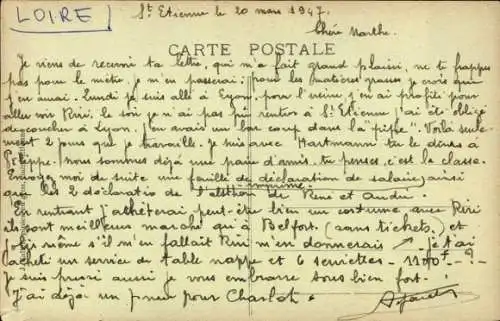 LOIRE
St Etienne le 20 mars 1947.
Chère Marthe.
CARTE POSTALE
Je viens de recevoir ta lettre, qui m'a fait grand plaisir, ne te frappes
pas pour le métro, je m'en passerai; pour les matières grasses je crois que
j'en aurai. Lundi je suis allé à Lyon, pour l'usine j'en ai profité pour
aller voir Riri, le soir je n'ai pas pu rentrer à St Etienne j'ai été obligé
de coucher à Lyon. J'en avais un bon coup dans la pipe". Voilà seule-
ment 2 jours que je travaille. Je suis avec Hartmann tu le diras à
Philippe. Nous sommes déjà une paire d'amis. tu penses, c'est la classe.
Envoye moi de suite une feuille de déclaration de salaire, ainsi
que les 2 declaratio de de René et
En rentrant j'achèterai peut-être bien un costume avec Riri
ils sont meilleurs marché qu'à Belfort, (sans tickets) et
même s'il m'en fallait Riri m'en donnerais je t'ai
acheté un service de table nappe et 6 serviettes - 1100f - ?
Je suis pressé aussi je vous embrasse tous bien fort.
J'ai déjà un pneu pour Charlot.